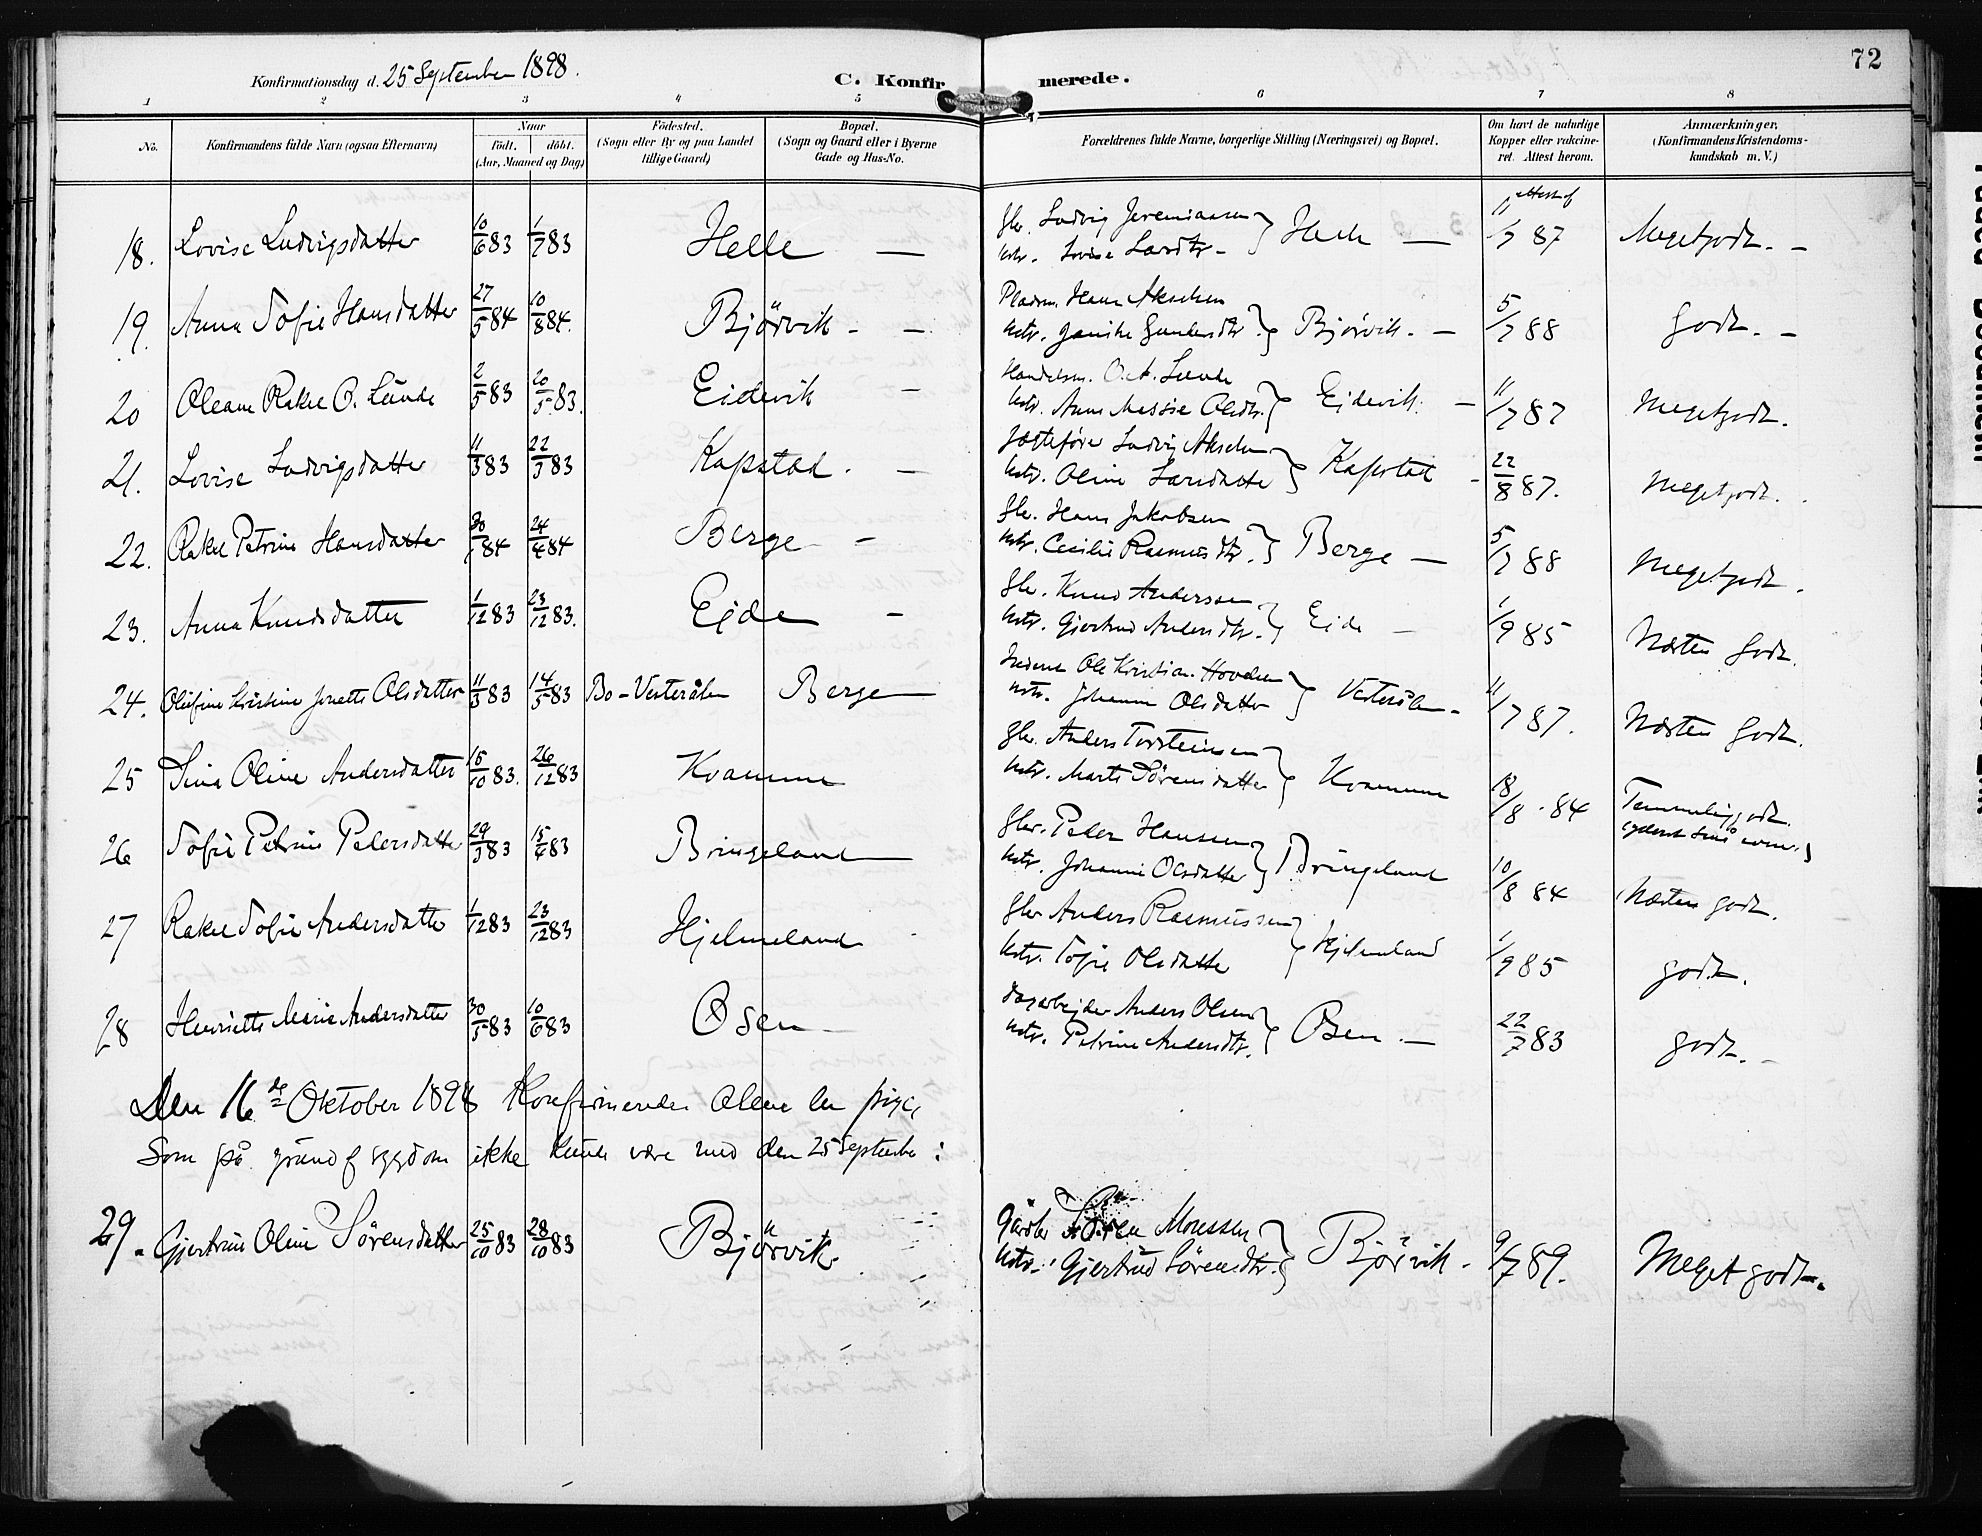 72
Konfirmationsdag d. 25 September 1898.
C. Konfirmerede.
1 2 3 4 5 6 7 8
No.
Konfirmandens fulde Navn (ogsaa Efternavn)
Naar
født. døbt.
(Aar, Maaned og Dag)
Fødested.
(Sogn eller By og paa Landet
tillige Gaard)
Bopæl.
(Sogn og Gaard eller i Byerne
Gade og Hus-No.
Forældrenes fulde Navne, borgerlige Stilling (Næringsvei) og Bopæl.
Om havt de naturlige
Kopper eller vakcine-
ret. Attest herom.
Anmærkninger,
(Konfirmandens Kristendoms-
kundskab m. V.)
18. Lovise Ludvigsdatter 10/6 83 1/7 83 Helle — Gbr. Ludvig Jeremiassen
Kstr. Lovise Larsdtr. } Helle — attest af 11/7 87 Megetgodt. –
19. Anna Sofie Hansdatter 27/5 84 10/8 84. Bjørvik - — Pladsm. Hans Akselsen
Kstr. Janike Gundersdtr. } Bjørvik. — 5/7 88 Godt. –
20 Oleane Rakel O. Lunde 2/5 83 20/5 83. Eidevik — Handelsm. O. A. Lunde
Kstr. Anna Massie Olsdtr. } Eidevik. — 11/7 87 Megetgodt.
21. Lovise Ludvigsdatter 11/3 83 22/3 83 Kapstad. — Jægtefører Ludvig Akselsen
Kstr. Oline Larsdatter } Kapstad - 22/8 87. Megetgodt.
22. Rakel Petrine Hansdatter 30/1 84 24/4 84 Berge — Gbr. Hans Jakobsen
Kstr. Cecilie Rasmusdtr. } Berge — 5/7 88 Megetgodt.
23. Anna Knudsdatter 1/12 83 23/12 83. Eide — Gbr. Knud Anderssen
Kstr. Gjertrud Andersdtr. } Eide — 1/9 85 Næsten Godt.
24. Olufine Kristine Jonette Olsdatter 11/3 83 14/5 83 Bo-Vesterålen Berge Inderst Ole Kristian Hovdsen
Kstr. Johanne Olsdatter } Vesterålen - 11/7 87. Næsten Godt.
25 Sina Oline Andersdatter 15/10 83. 26/12 83 Kvamme Gbr. Anders Torsteinsen
Kstr. Marte Sørensdatter } Kvamme 18/8 84 Temmelig godt.
26 Sofie Petrine Petersdatter 29/3 83 15/4 83 Bringeland Gbr. Peder Hanssen
Kstr. Johanne Olsdatter } Bringeland 10/8 84 Næsten godt.
27 Rakel Sofie Andersdatter 1/12 83 23/12 83 Hjelmeland Gbr Anders Rasmussen
Kstr. Sofie Olsdatter } Hjelmeland 1/9 85 godt.
28 Henriette Marie Andersdatter 30/5 83 10/6 83 Osen Dagarbejder Anders Olsen
Kstr. Petrine Andersdtr. } Osen. — 22/7 83 godt. –
Den 16de Oktober 1898 Konfirmeredes Alene en pige,
Som på grund af sygdom ikke kunde være med den 25 September:
29. Gjertrud Oline Sørensdatter 25/10 83 28/10 83 Bjørvik Gårdbr Søren Monssen
Kstr. Gjertrud Sørensdtr. } Bjørvik. 9/7 89. Meget godt.